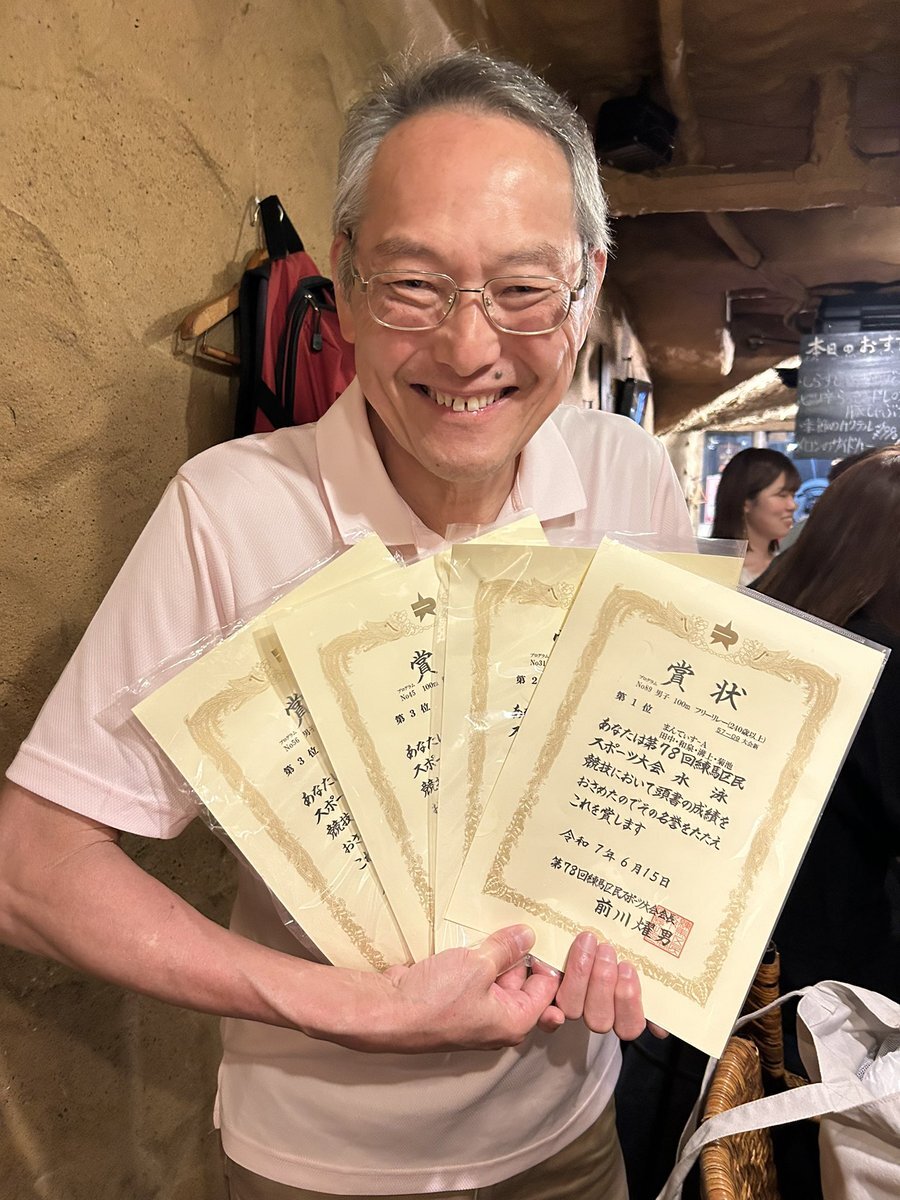 本日のおす
賞
プログラム
No56 男子
第3位
あなたは
スポー
競技
おさ
これ
賞
プログラム
No45 100m
第3位
あなたは
スポー
競技
おさめ
これ
プログラム
No31
第2
あ
ス
賞状
プログラム
No89 男子 100m フリーリレー(240歳以上)
第1位 57-09 大会新
まんてぃす-A
田中・和泉・淵上・菊池
あなたは第78回練馬区民
スポーツ大会 水泳
競技において頭書の成績を
おさめたのでその名誉をたたえ
これを賞します
令和7年6月15日
第78回練馬区民スポーツ大会会長
前川燿男